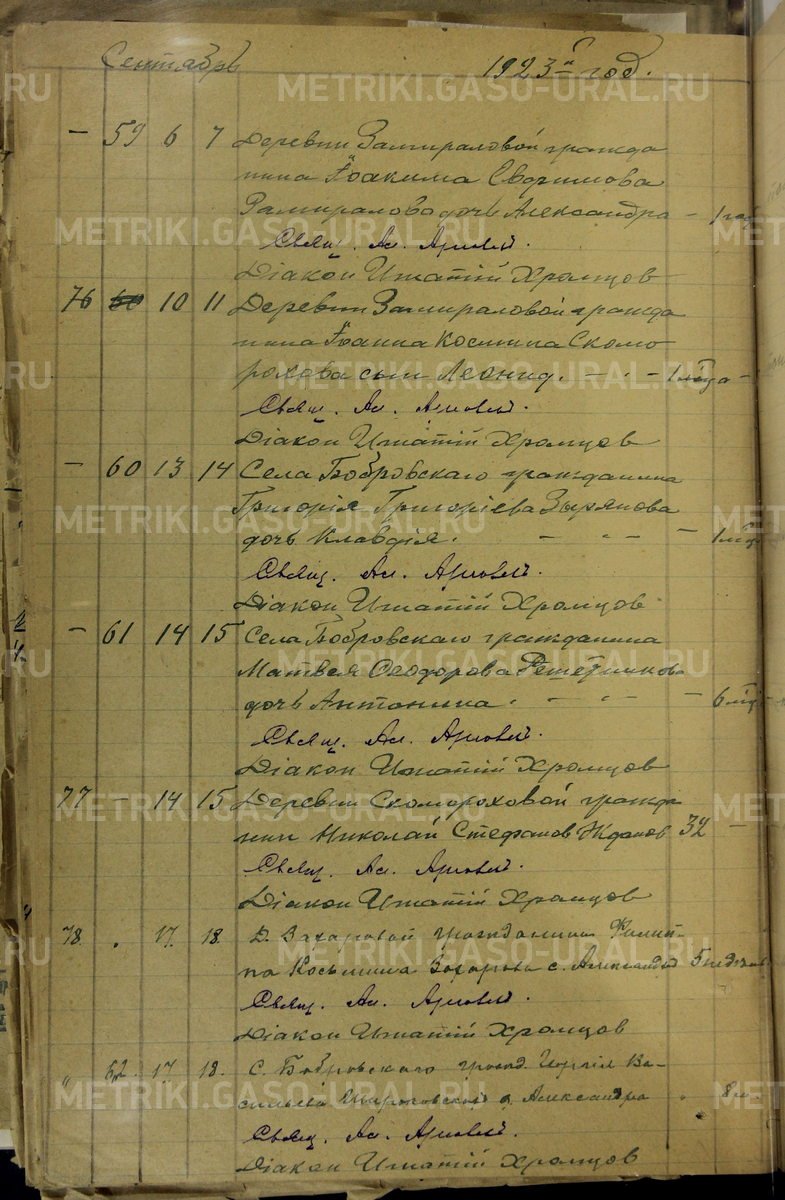 Сентябрь 1923й год.
— 59 6 7 Деревни Замираловой гражда
нина Іоакима Евфимова
Замиралова дочь Александра — 1 год
Свящ. Ал.
Діаконъ Игнатій Храмцов
76 60 10 11 Деревни Замираловой гражда
нина Іоанна Космина Скомо
рохова сын Леонид. — „ — 1 м–ца —
Свящ. Ал.
Діакон Игнатій Храмцов
— 60 13 14 Села Бобровскаго гражданина
Григорія Григоріева Зырянова
дочь Клавдія. — „ — — 1 м
Свящ. Ал.
Діакон Игнатій Храмцов
— 61 14 15 Села Бобровскаго гражданина
Матвея Феодорова Решетникова
дочь Антонина. — „ — — 6 м
Свящ. Ал.
Діакон Игнатій Храмцов
77 — 14 15 Деревни Скомороховой гражда
нин Николай Стефанов Жданов 32 —
Свящ. Ал.
Діакон Игнатій Храмцов
78. „ 17. 18. Д. Захаровой гражданина Филип
па Косьмина Захарова с. Александр 5
Свящ. Ал.
Діакон Игнатій Храмцов
„ 62. 17. 18. С. Бобровскаго гражд. Ва-
сильева д. Александра „ 8 м.
Свящ. Ал.
Діакон Игнатій Храмцов
METRIKI.GASO-URAL.RU